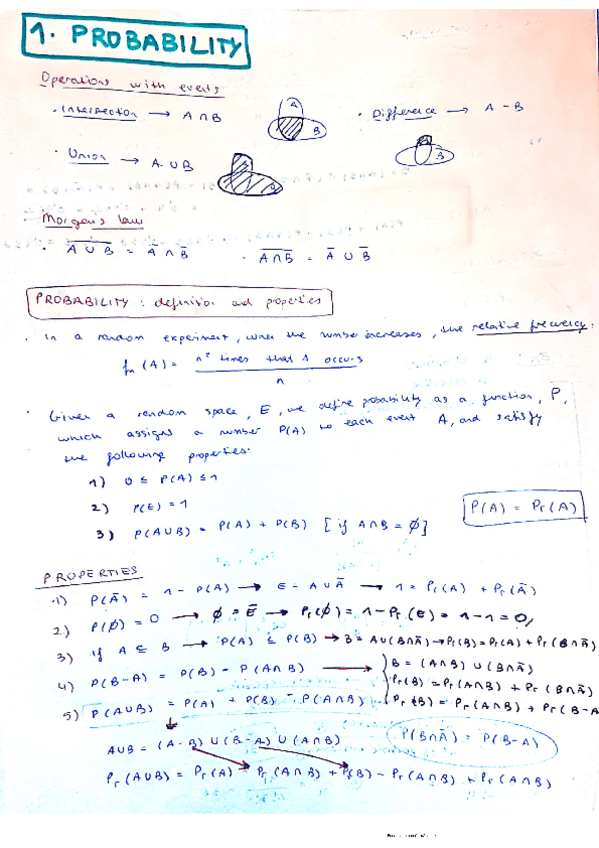 1. PROBABILITY
Operations with events
· Intersection → A ∩ B
A
B
· Difference → A - B
B
· Union → A ∪ B
B
Morgan's law
· \overline{A ∪ B} = Ā ∩ B̄ · \overline{A ∩ B} = Ā ∪ B̄
PROBABILITY : definition and properties
· In a random experiment, when the number increases, the relative frecuency:
fn (A) = nº times that A occurs / n
· Given a random space, E, we define probability as a function, P,
which assigns a number P(A) to each event A, and satisfy
the following properties:
1) 0 ≤ P(A) ≤ 1
2) P(E) = 1
P(A) = Pr(A)
3) P(A∪B) = P(A) + P(B) [if A∩B = ∅]
PROPERTIES
1) P(Ā) = 1 - P(A) → E = A∪Ā → 1 = Pr(A) + Pr(Ā)
2) P(∅) = 0 → ∅ = Ē → Pr(∅) = 1 - Pr(E) = 1 - 1 = 0
3) if A ⊆ B → P(A) ≤ P(B) → B = A∪(B∩Ā) → Pr(B) = Pr(A) + Pr(B∩Ā)
4) P(B-A) = P(B) - P(A∩B) → { B = (A∩B) ∪ (B∩Ā)
Pr(B) = Pr(A∩B) + Pr(B∩Ā)
Pr(B) = Pr(A∩B) + Pr(B-A
5) P(A∪B) = P(A) + P(B) - P(A∩B)
P(B∩Ā) = P(B-A)
A∪B = (A-B) ∪ (B-A) ∪ (A∩B)
Pr(A∪B) = Pr(A) - Pr(A∩B) + P(B) - Pr(A∩B) + Pr(A∩B)